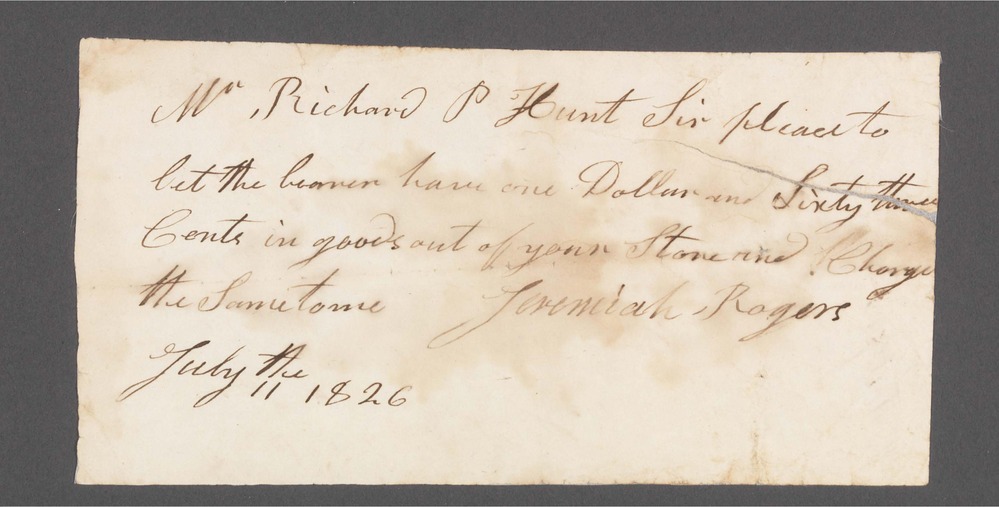 Mr Richard P Hunt Sir pleace to
let the bearer have one Dollar and Sixty three
Cents in goods out of your Store and Charge
the Same to me Jeremiah Rogers
July the
11 1826